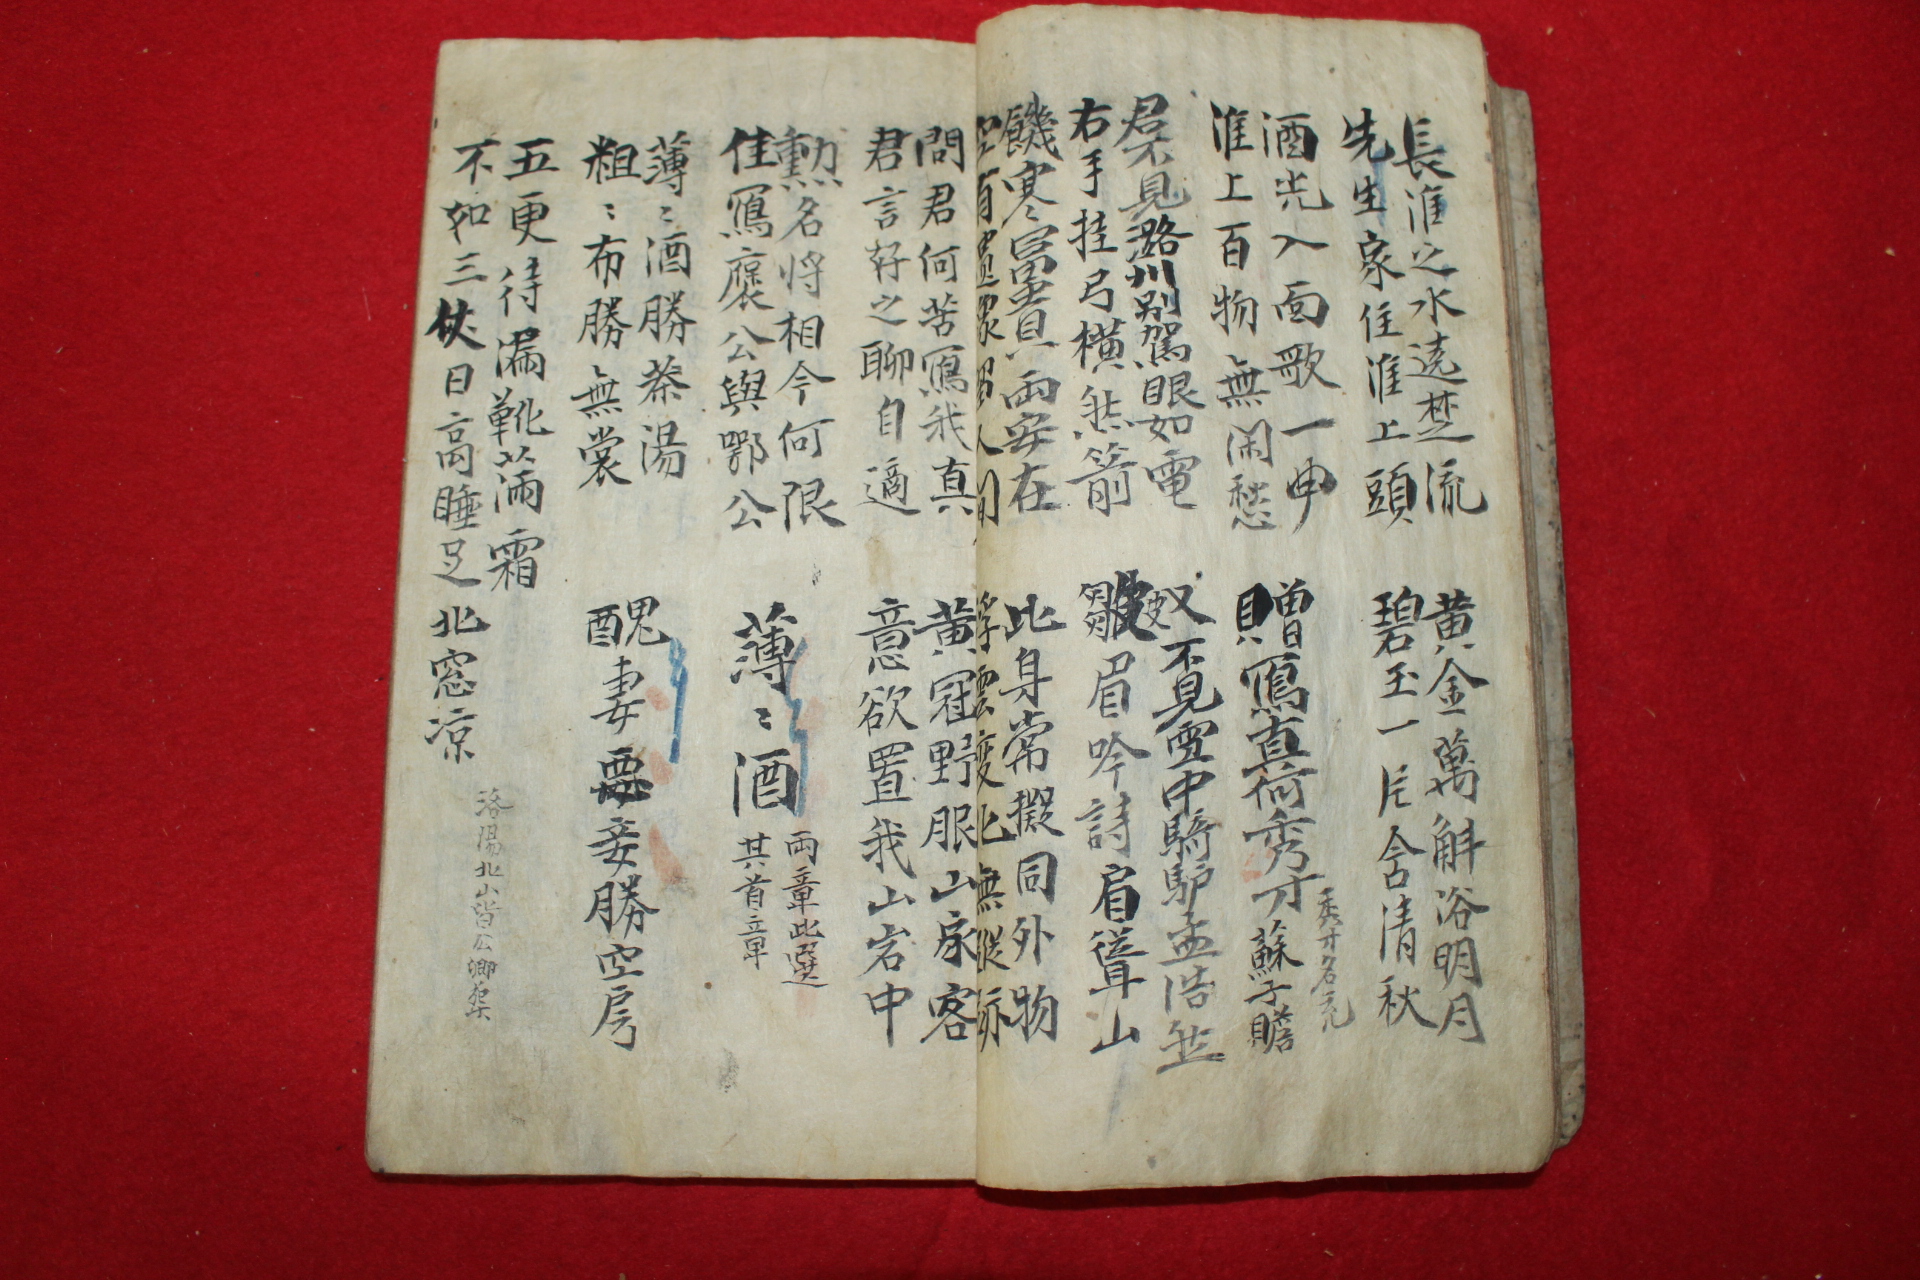 長淮之水遶楚流
先生家住淮上頭
黃金萬斛浴明月
碧玉一片含清秋
酒光入面歌一申
淮上百物無閑愁
贈寫真何秀才 蘇子瞻
秀才名充
君不見潞州別駕眼如電
右手挂弓橫然箭
又不見雪中騎驢孟浩然
皺眉吟詩肩聳山
饑寒富貴兩安在
空有遺像留人間
此身常擬同外物
浮雲變化無蹤跡
問君何苦寫我真
君言好之聊自適
黃冠野服山家客
意欲置我山岩中
勳名將相今何限
佳寫褒公與鄂公
薄〻酒
兩章此選
其首章
薄〻酒勝茶湯
粗〻布勝無裳
醜妻惡妾勝空房
五更待漏靴滿霜
不如三伏日高睡足北窓凉
洛陽北山皆公卿